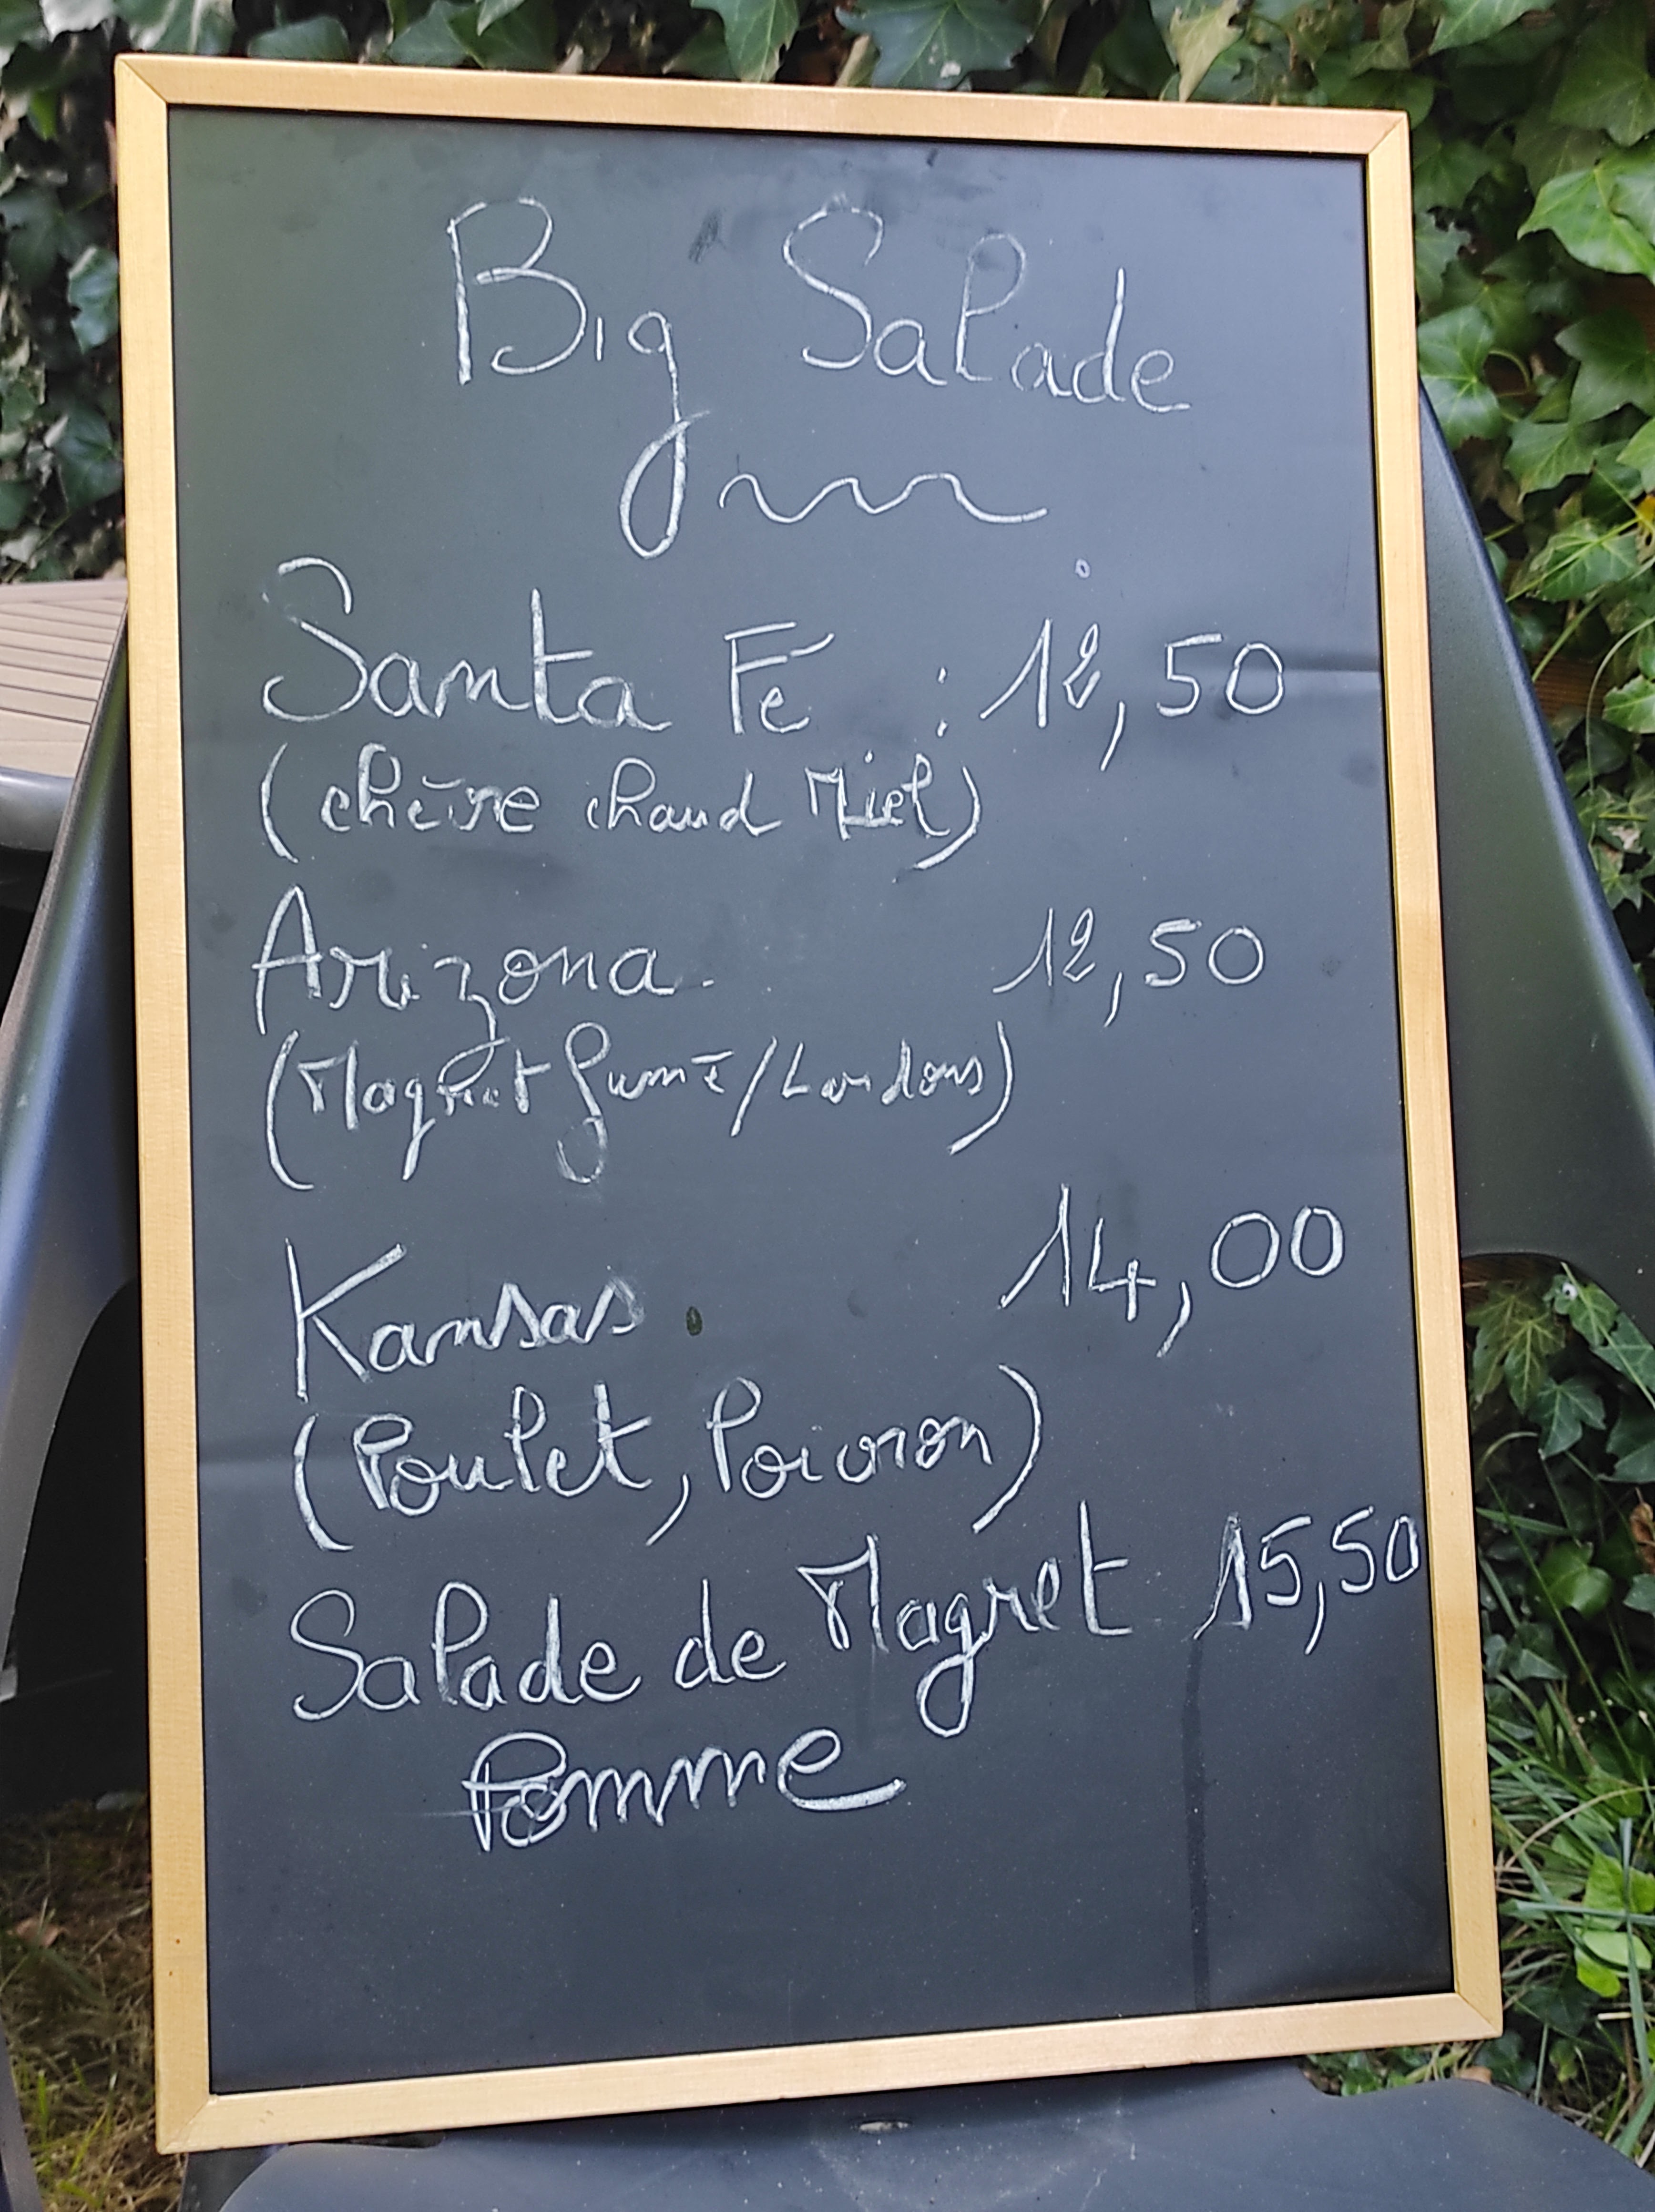 Big Salade
Santa Fé : 12,50
(chèvre chaud Miel)
Arizona. 12,50
(Magret fumé/Lardons)
Kansas. 14,00
(Poulet, Poivron)
Salade de Magret 15,50
Pomme